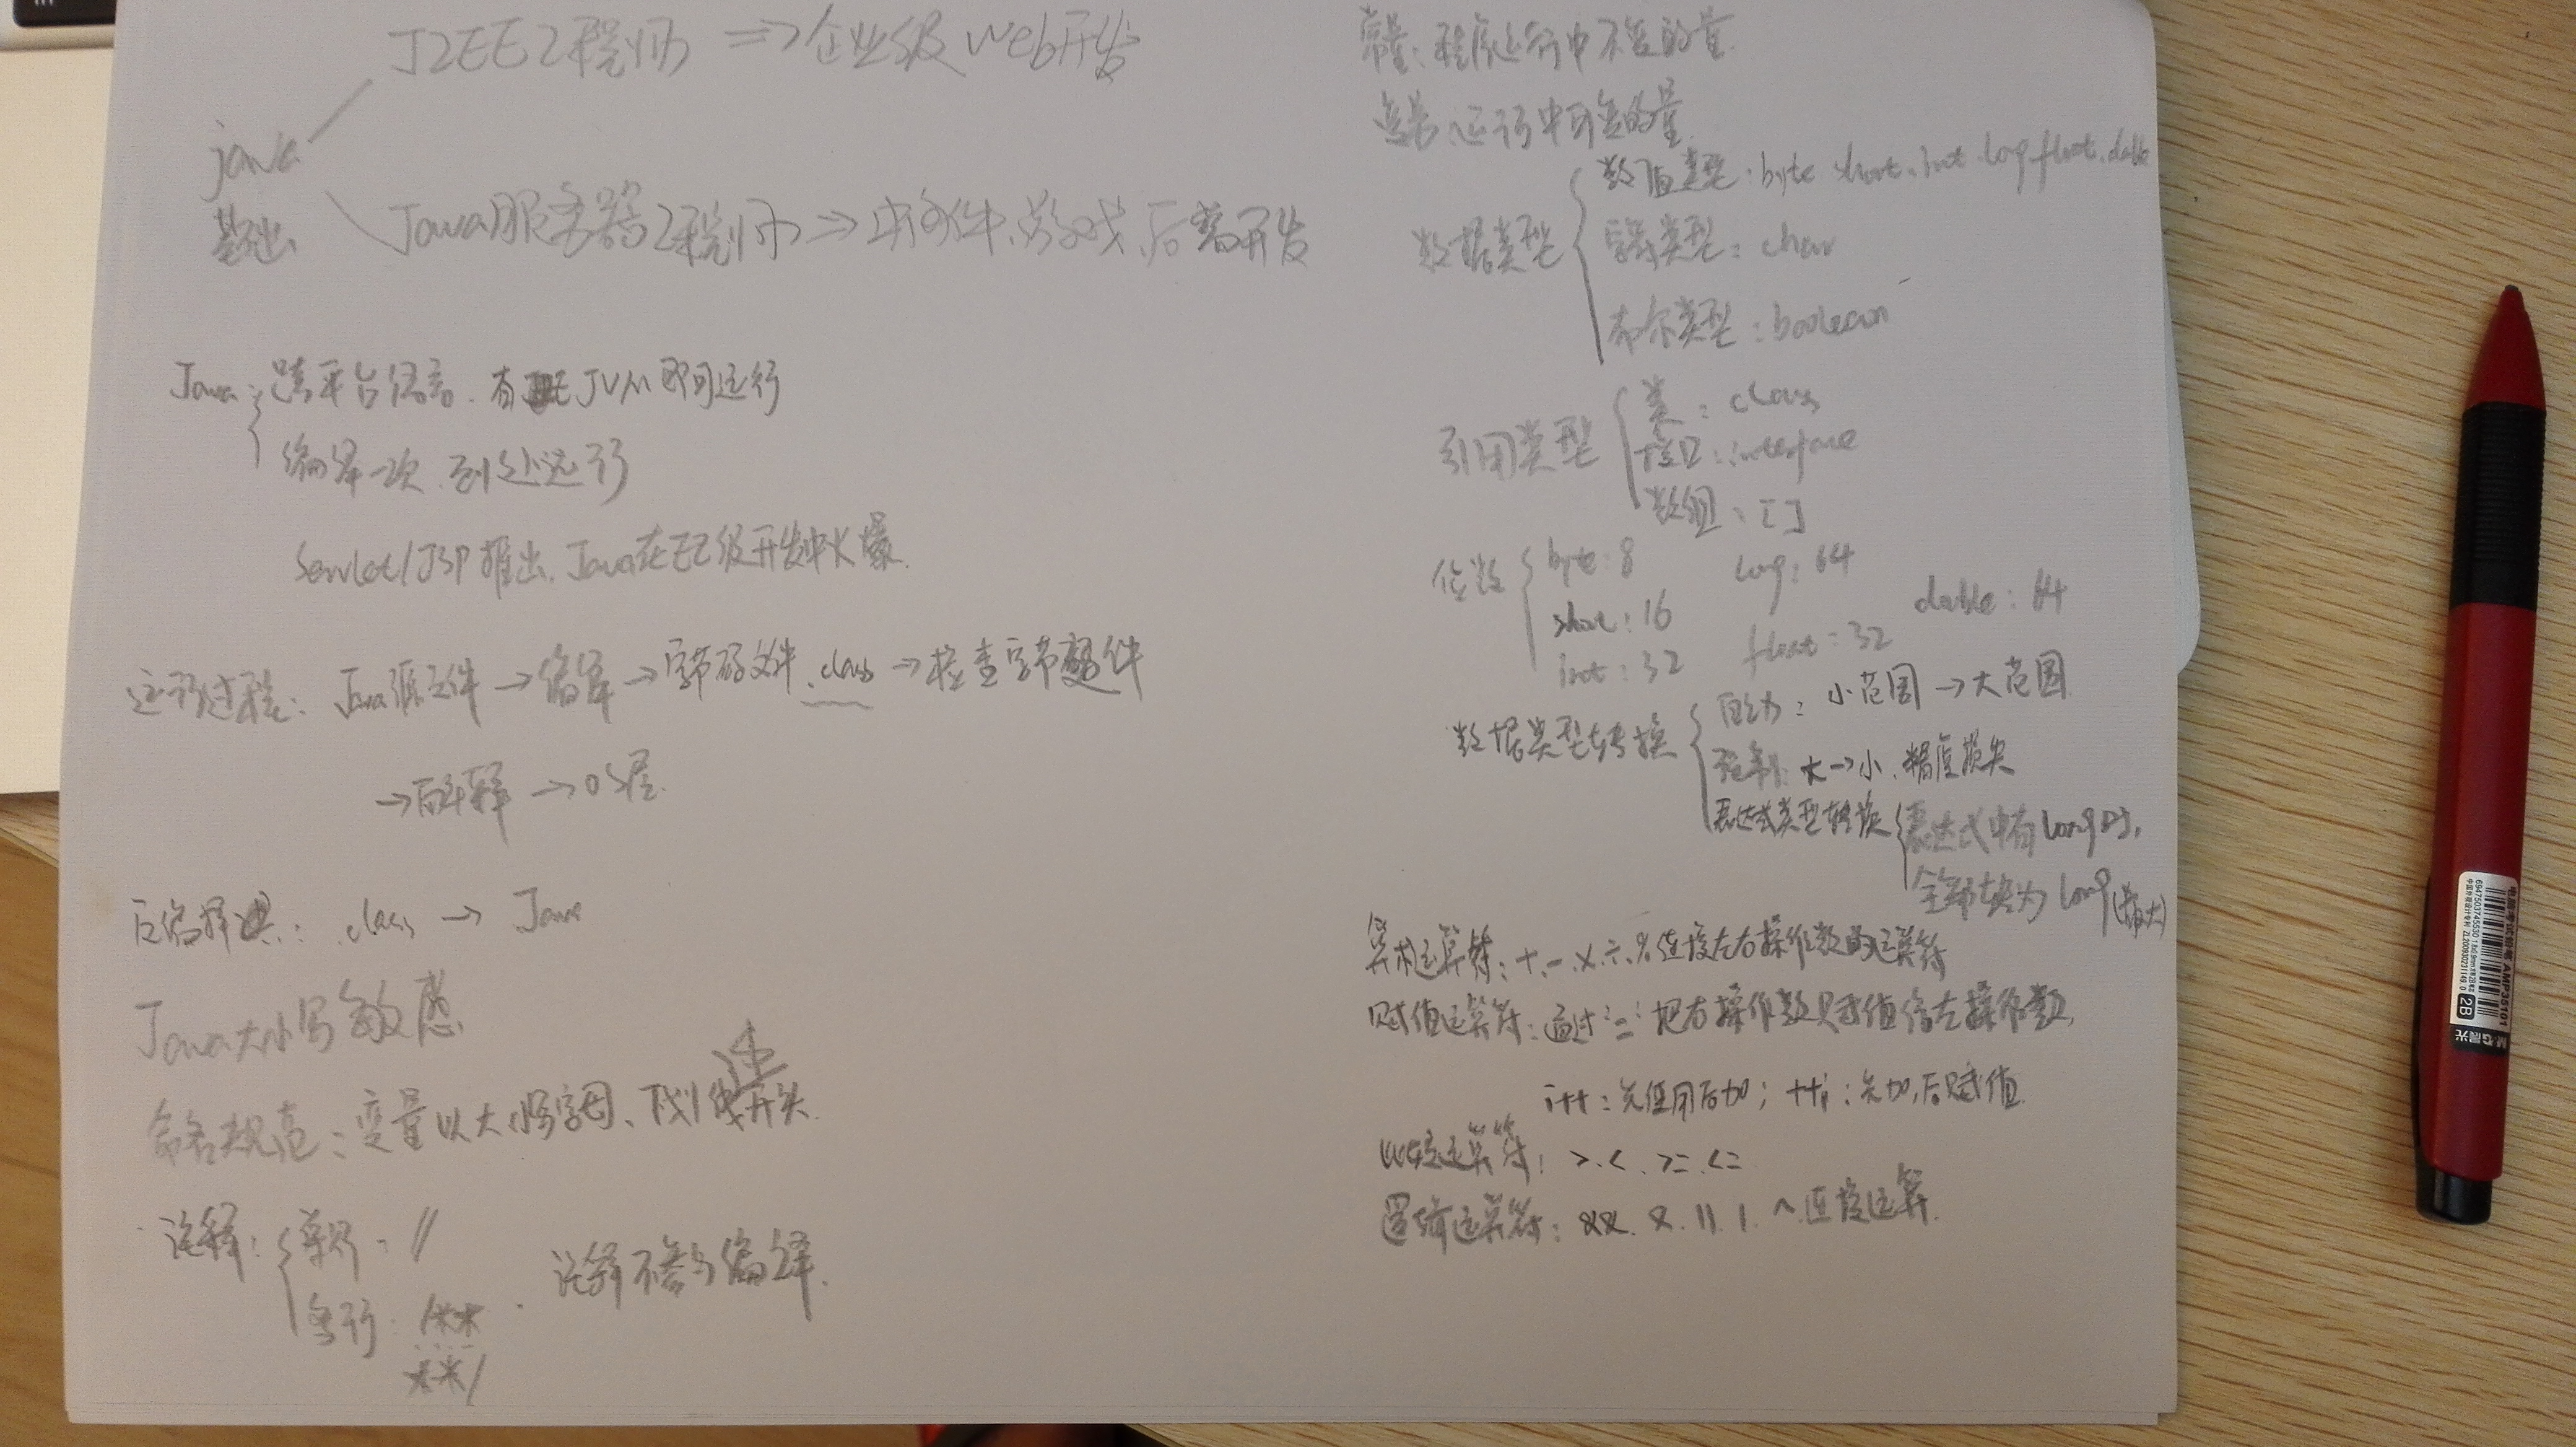 J2EE工程师 => 企业级web开发
java
基础
Java服务器工程师 → 中间件、游戏、后台开发
Java: 跨平台语言. 有 JVM即可运行
编译一次.到处运行
Servlet/JSP推出.Java在EE级开发中火爆.
运行过程: Java源文件 → 编译 → 字节码文件 .class → 检查字节码文件
→ 解释 → OS层.
反编译: .class → Java
Java大小写敏感
命名规范: 变量以大小写字母、下划线开头.
注释: 单行: //
多行: /**
....
**/
注释不参与编译.
常量: 程序运行中不变的量.
变量:运行中可变的量.
数据类型
数值类型: byte.short.int.long.float.double
字符类型: char
布尔类型: boolean
引用类型
类: class
接口: interface
数组: []
位数
byte: 8 long: 64
short: 16 double: 64
int: 32 float: 32
数据类型转换
自动: 小范围 → 大范围.
强制: 大→小.精度损失
表达式类型转换
表达式中有long时,
全部转为long(最大)
算术运算符: +.-.×.÷.%连接左右操作数的运算符
赋值运算符: 通过"="把右操作数赋值给左操作数,
i++: 先使用后加; ++i: 先加,后赋值.
比较运算符: >.<.>=.<=
逻辑运算符: &&. &. ||. |. ^.连接运算.
M&G晨光
AMP35101
2B
6947503745530